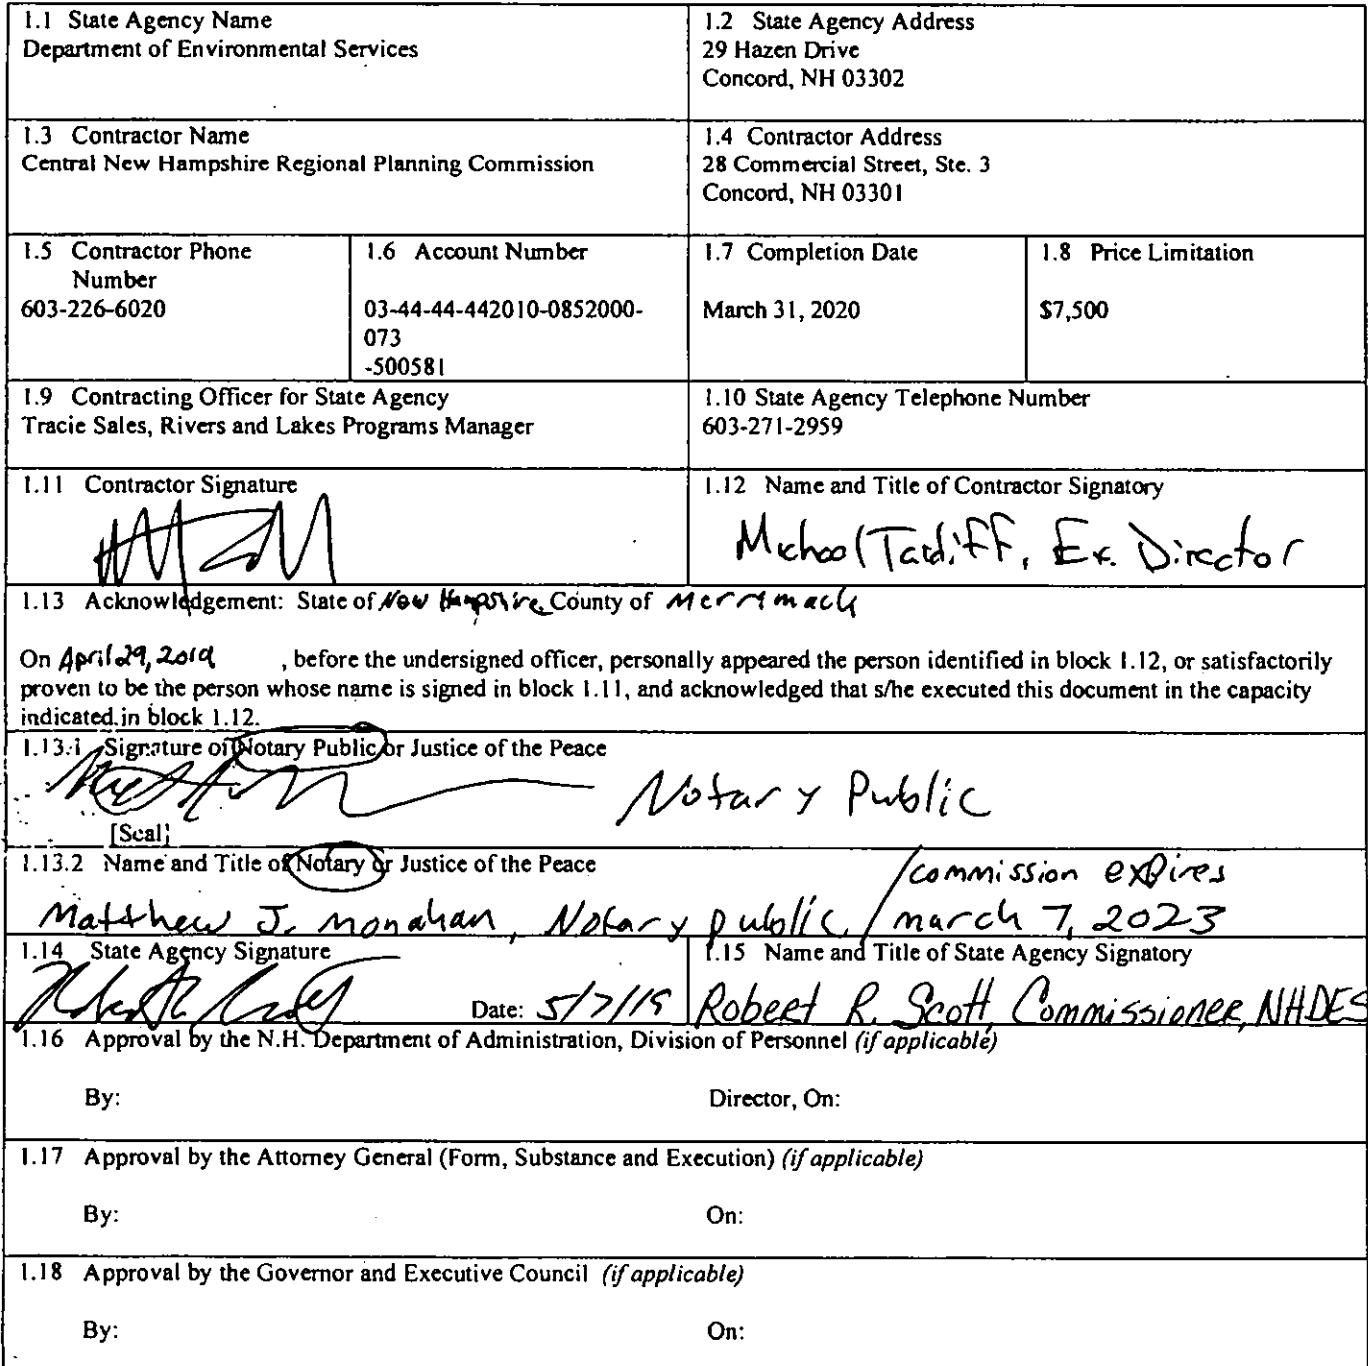 1.1 State Agency Name
Department of Environmental Services
1.2 State Agency Address
29 Hazen Drive
Concord, NH 03302
1.3 Contractor Name
Central New Hampshire Regional Planning Commission
1.4 Contractor Address
28 Commercial Street, Ste. 3
Concord, NH 03301
1.5 Contractor Phone
Number
603-226-6020
1.6 Account Number
03-44-44-442010-0852000-
073
-500581
1.7 Completion Date
March 31, 2020
1.8 Price Limitation
$7,500
1.9 Contracting Officer for State Agency
Tracie Sales, Rivers and Lakes Programs Manager
1.10 State Agency Telephone Number
603-271-2959
1.11 Contractor Signature
1.12 Name and Title of Contractor Signatory
Michael Tardiff, Ex. Director
1.13 Acknowledgement: State of New Hampshire County of Merrimack
On April 29, 2019 , before the undersigned officer, personally appeared the person identified in block 1.12, or satisfactorily
proven to be the person whose name is signed in block 1.11, and acknowledged that s/he executed this document in the capacity
indicated in block 1.12.
1.13.1 Signature of Notary Public or Justice of the Peace
Notary Public
[Seal]
1.13.2 Name and Title of Notary or Justice of the Peace
/commission expires
Matthew J. Monahan, Notary public / march 7, 2023
1.14 State Agency Signature
Date: 5/7/19
1.15 Name and Title of State Agency Signatory
Robert R. Scott, Commissioner, NHDES
1.16 Approval by the N.H. Department of Administration, Division of Personnel (if applicable)
By: Director, On:
1.17 Approval by the Attorney General (Form, Substance and Execution) (if applicable)
By: On:
1.18 Approval by the Governor and Executive Council (if applicable)
By: On: